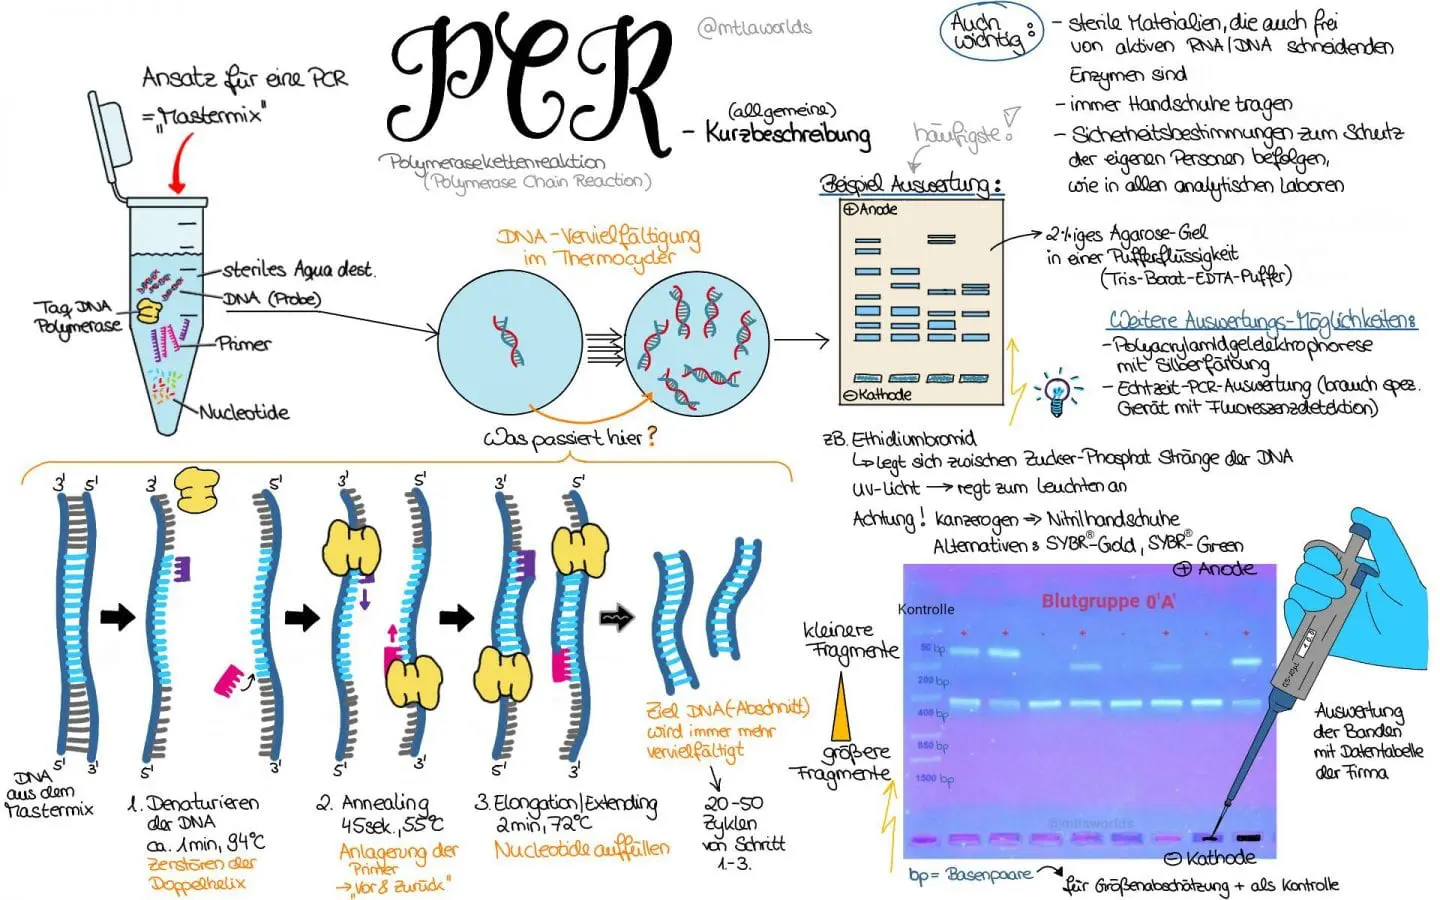 PCR
@mtlaworlds
(allgemeine)
- Kurzbeschreibung
Polymerasekettenreaktion
(Polymerase Chain Reaction)
Ansatz für eine PCR
= „Mastermix"
steriles Aqua dest.
DNA (Probe)
Taq DNA
Polymerase
Primer
Nucleotide
DNA-Vervielfältigung
im Thermocycler
Was passiert hier?
häufigste!
Beispiel Auswertung:
+ Anode
- Kathode
Auch
wichtig:
- sterile Materialien, die auch frei
von aktiven RNA/DNA schneidenden
Enzymen sind
- immer Handschuhe tragen
- Sicherheitsbestimmungen zum Schutz
der eigenen Personen befolgen,
wie in allen analytischen Laboren
2%iges Agarose-Gel
in einer Pufferflüssigkeit
(Tris-Borat-EDTA-Puffer)
Weitere Auswertungs-Möglichkeiten:
- Polyacrylamidgelelektrophorese
mit Silberfärbung
- Echtzeit-PCR-Auswertung (brauch spez.
Gerät mit Fluoreszenzdetektion)
zB. Ethidiumbromid
↳ legt sich zwischen Zucker-Phosphat Stränge der DNA
UV-Licht → regt zum Leuchten an
Achtung! kanzerogen ⇒ Nitrilhandschuhe
Alternativen: SYBR®-Gold, SYBR®-Green
3' 5'
5' 3'
DNA
aus dem
Mastermix
3' 5'
5' 3'
1. Denaturieren
der DNA
ca. 1min, 94°C
Zerstören der
Doppelhelix
3' 5'
5' 3'
2. Annealing
45sek., 55°C
Anlagerung der
Primer
→ „Vor & Zurück"
3' 5'
5' 3'
3. Elongation/Extending
2min, 72°C
Nucleotide auffüllen
Ziel DNA(-Abschnitt)
wird immer mehr
vervielfältigt
20-50
Zyklen
von Schritt
1.-3.
+ Anode
Kontrolle
Blutgruppe 0'A'
+ + - + - + - +
kleinere
Fragmente
größere
Fragmente
50 bp
200 bp
400 bp
850 bp
1500 bp
@mtlaworlds
- Kathode
0,5-10µL
10.0
Auswertung
der Banden
mit Datentabelle
der Firma
bp = Basenpaare
für Größenabschätzung + als Kontrolle